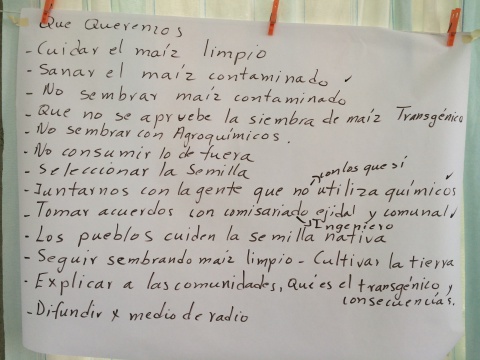 Que Queremos
- Cuidar el maíz limpio
- Sanar el maíz contaminado ✓
- No sembrar maíz contaminado
- Que no se apruebe la siembra de maíz Transgénico
- No sembrar con Agroquímicos.
- No consumir lo de fuera
- Seleccionar la Semilla
con los que sí
- Juntarnos con la gente que no utiliza químicos ✓
- Tomar acuerdos con comisariado ejidal y comunal ✓
Ingeniero
- Los pueblos cuiden la semilla nativa
- Seguir sembrando maíz limpio - Cultivar la tierra
- Explicar a las comunidades, Qué es el transgénico y
consecuencias.
- Difundir x medio de radio